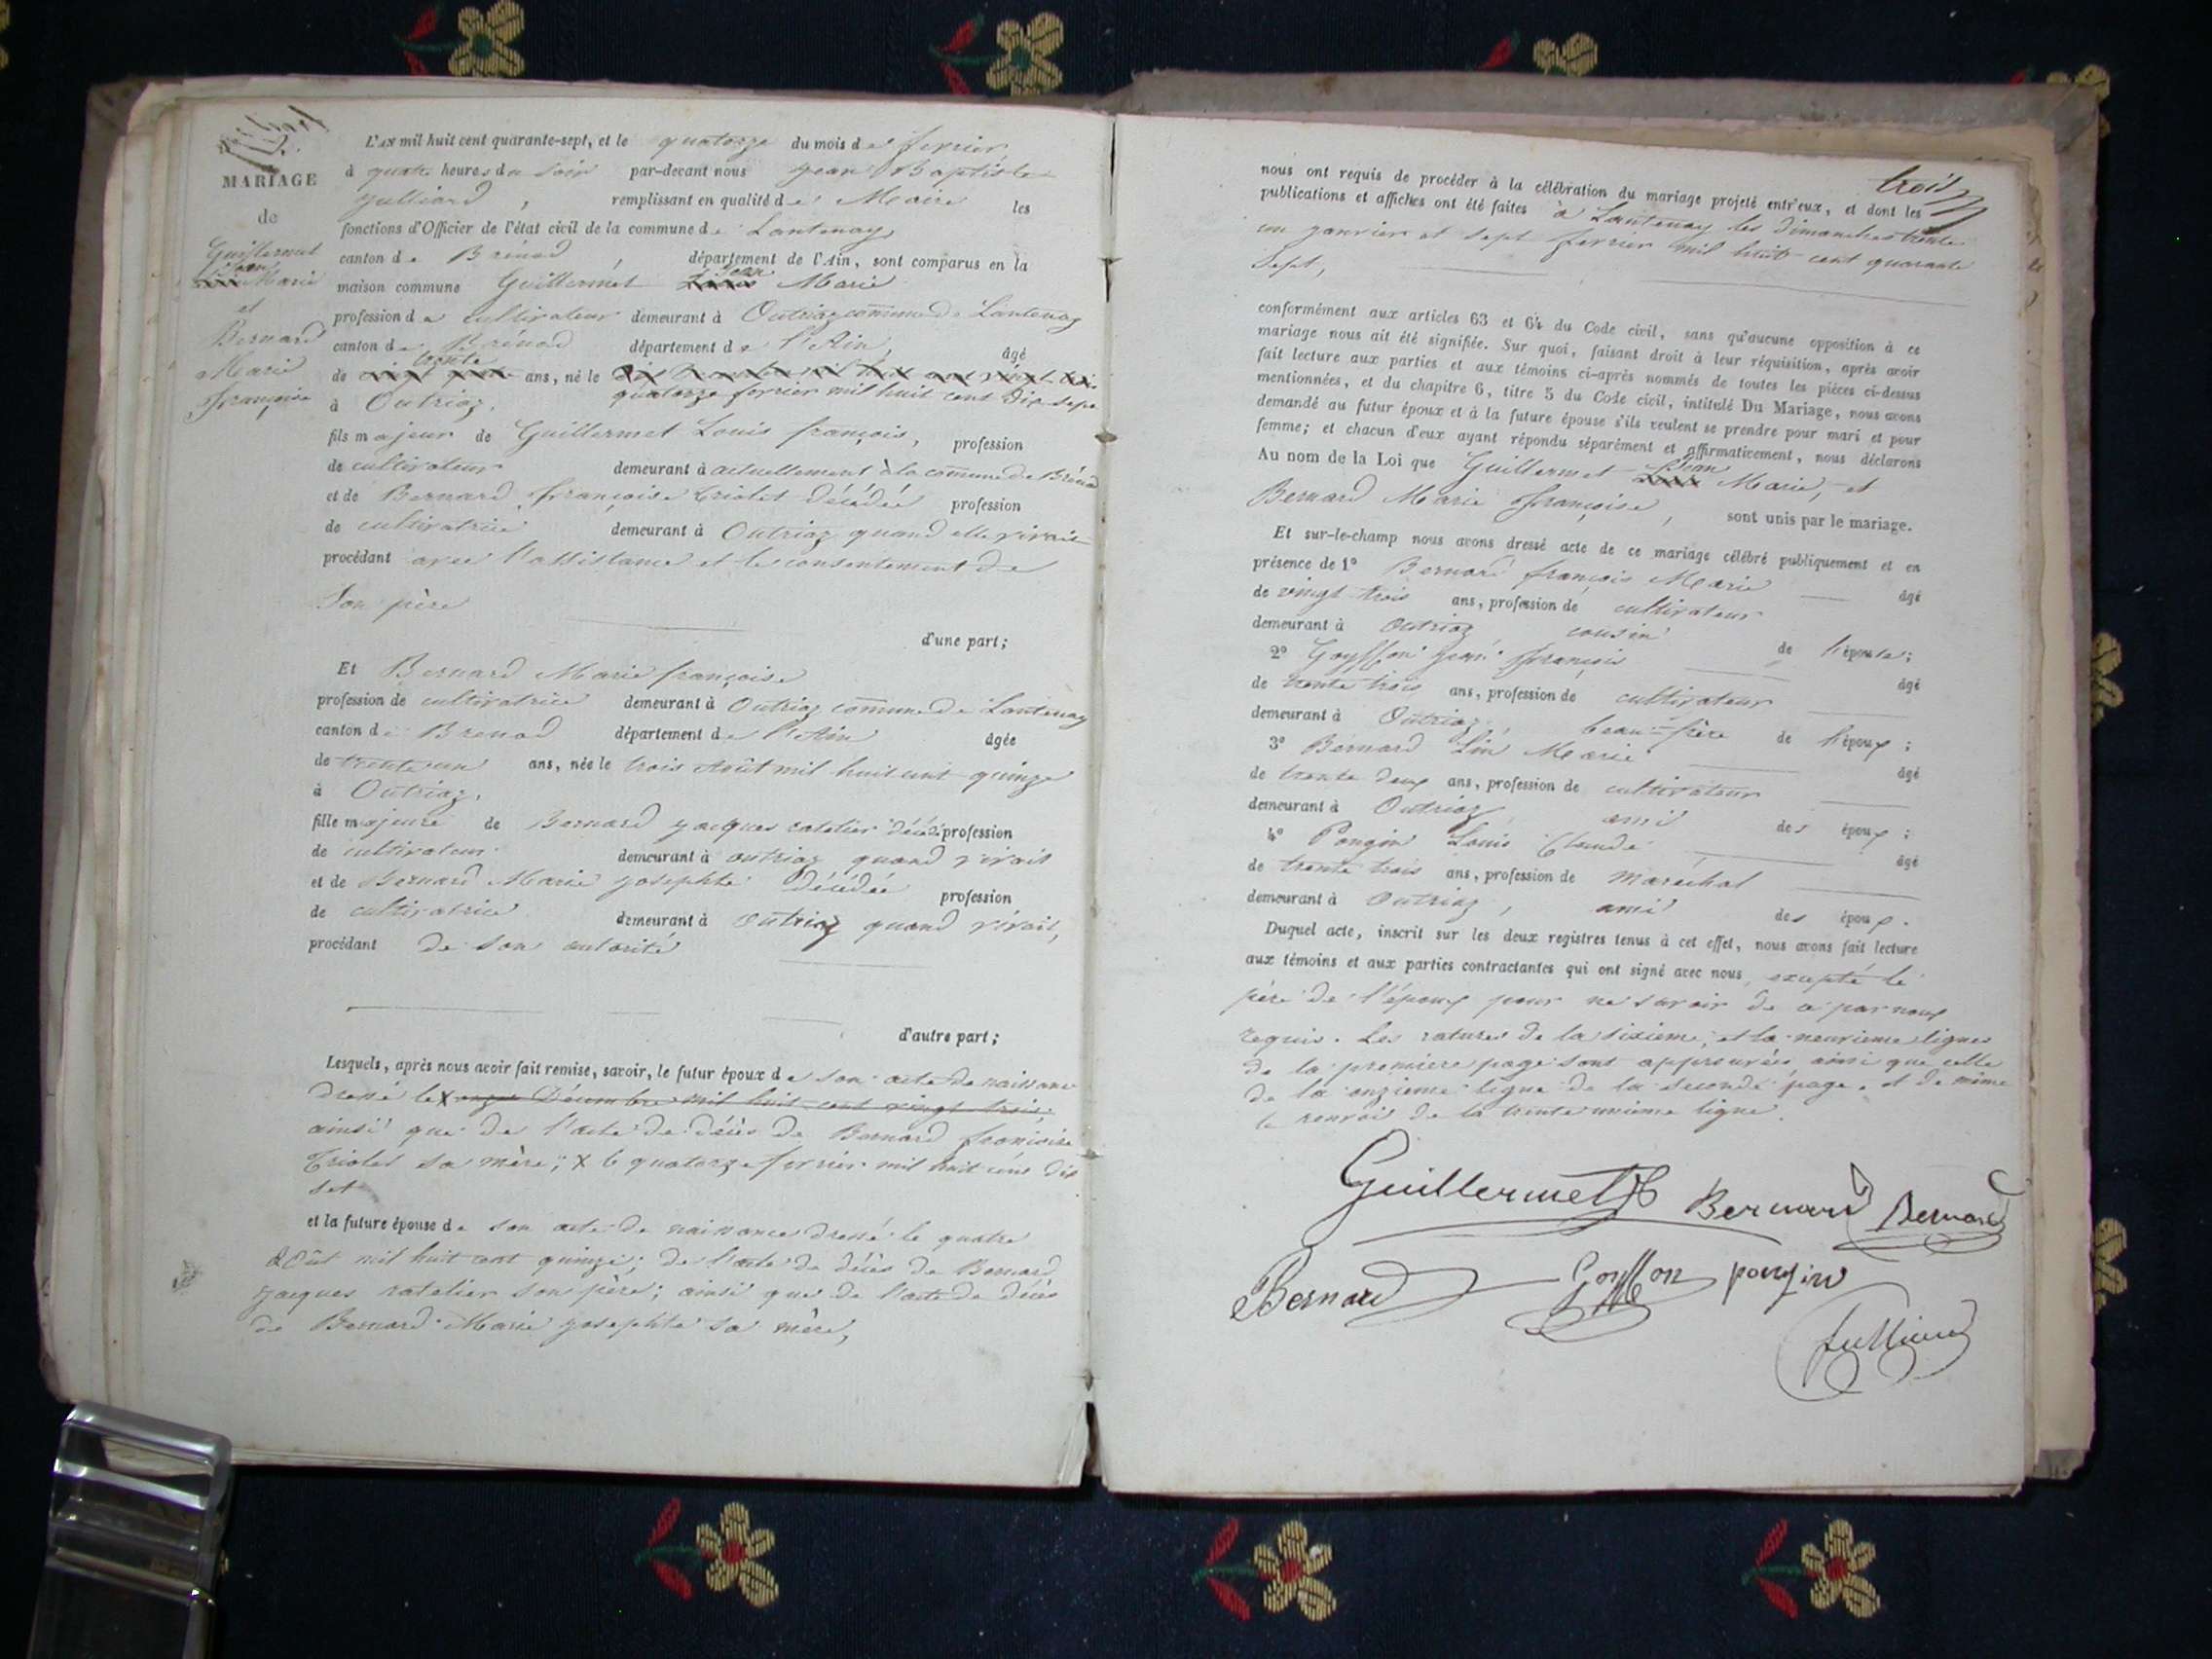 MARIAGE
de
Guillermet
Jean
Marie
et
Bernard
Marie
françoise
L'AN mil huit cent quarante-sept, et le quatorze du mois de fevrier
à quatre heures du soir par-devant nous Jean Baptiste
Julliard, remplissant en qualité de Maire les
fonctions d'Officier de l'état civil de la commune de Lantenay
canton de Brénod, département de l'Ain, sont comparus en la
maison commune Guillermet Jean Marie
profession de cultivateur demeurant à Outriaz commune de Lantenay
canton de Brénod département de l'Ain, âgé
de trente ans, né le
quatorze fevrier mil huit cent dix sept
à Outriaz,
fils majeur de Guillermet Louis françois, profession
de cultivateur demeurant à actuellement à la commune de Brénod
et de Bernard françoise Triolet décédée profession
de cultivatrice demeurant à Outriaz quand elle vivait
procédant avec l'assistance et le consentement de
son père
d'une part;
Et Bernard Marie françoise
profession de cultivatrice demeurant à Outriaz commune de Lantenay
canton de Brenod département de l'Ain âgée
de trente un ans, née le trois Août mil huit cent quinze
à Outriaz,
fille majeure de Bernard jacques ratelier décédé profession
de cultivateur demeurant à outriaz quand vivait
et de Bernard Marie josephte décédée profession
de cultivatrice demeurant à outriaz quand vivait,
procédant de son autorité
d'autre part;
Lesquels, après nous avoir fait remise, savoir, le futur époux de son acte de naissance
dressé le X onze Décembre mil huit cent vingt trois;
ainsi que de l'acte de décès de Bernard françoise
Triolet sa mère; X le quatorze fevrier mil huit cent dix
set
et la future épouse de son acte de naissance dressé le quatre
août mil huit cent quinze; de l'acte de décès de Bernard
jacques ratelier son père; ainsi que de l'acte de décès
de Bernard Marie josephte sa mère,
trois
nous ont requis de procéder à la célébration du mariage projeté entr'eux, et dont les
publications et affiches ont été faites à Lantenay les dimanches trente
un janvier et sept fevrier mil huit cent quarante
sept,
conformément aux articles 63 et 64 du Code civil, sans qu'aucune opposition à ce
mariage nous ait été signifiée. Sur quoi, faisant droit à leur réquisition, après avoir
fait lecture aux parties et aux témoins ci-après nommés de toutes les pièces ci-dessus
mentionnées, et du chapitre 6, titre 5 du Code civil, intitulé Du Mariage, nous avons
demandé au futur époux et à la future épouse s'ils veulent se prendre pour mari et pour
femme; et chacun d'eux ayant répondu séparément et affirmativement, nous déclarons
Au nom de la Loi que Guillermet Jean Marie, et
Bernard Marie françoise, sont unis par le mariage.
Et sur-le-champ nous avons dressé acte de ce mariage célébré publiquement et en
présence de 1° Bernard françois Marie âgé
de vingt trois ans, profession de cultivateur
demeurant à Outriaz cousin de l'épouse;
2° Goyffon jean françois âgé
de trente trois ans, profession de cultivateur
demeurant à Outriaz, beau=frère de l'époux;
3° Bernard Lin Marie âgé
de trente deux ans, profession de cultivateur
demeurant à Outriaz, ami des époux;
4° Pongin Louis Claude âgé
de trente trois ans, profession de maréchal
demeurant à Outriaz, ami des époux.
Duquel acte, inscrit sur les deux registres tenus à cet effet, nous avons fait lecture
aux témoins et aux parties contractantes qui ont signé avec nous, excepté le
père de l'époux pour ne savoir de ce par nous
requis. Les ratures de la sixieme, et la neuvieme lignes
de la première page sont approuvées ainsi que celle
de la onzieme ligne de la seconde page. et de même
le renvoi de la trente unieme ligne.
Guillermet Bernard Bernard
Bernard Goyffon pongin
Julliard